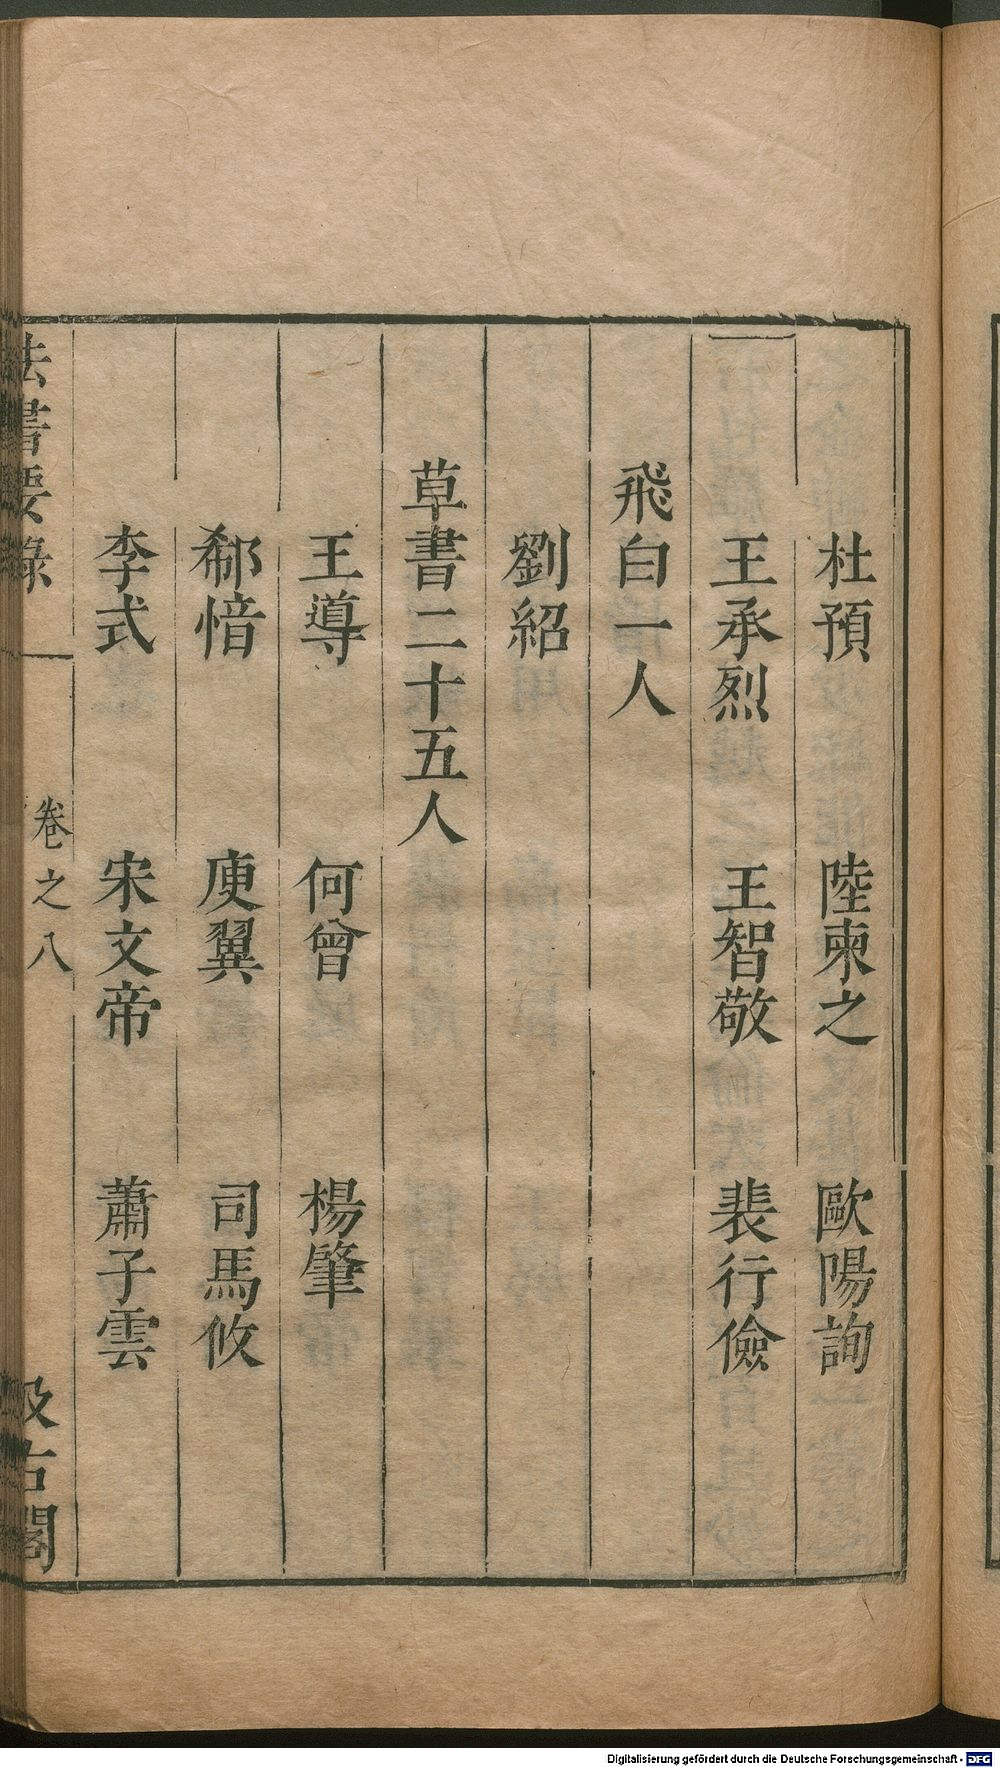 杜預 陸柬之 歐陽詢
王承烈 王智敬 裴行儉
飛白一人
劉紹
草書二十五人
王導 何曾 楊肇
郗愔 庾翼 司馬攸
李式 宋文帝 蕭子雲
法書要錄 卷之八 汲古閣
Digitalisierung gefördert durch die Deutsche Forschungsgemeinschaft - DFG